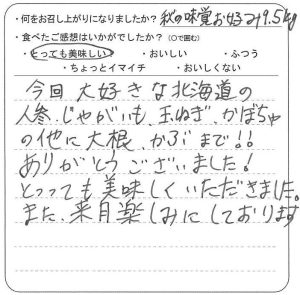 ・何をお召し上がりになりましたか？ 秋の味覚お好み9.5kg
・食べたご感想はいかがでしたか？（○で囲む）
・とっても美味しい ・おいしい ・ふつう
・ちょっとイマイチ ・おいしくない
今回 大好きな北海道の
人参、じゃがいも、玉ねぎ、かぼちゃ
の他に大根、かぶまで！！
ありがとうございました！
とっっても美味しくいただきました。
また、来月楽しみにしております